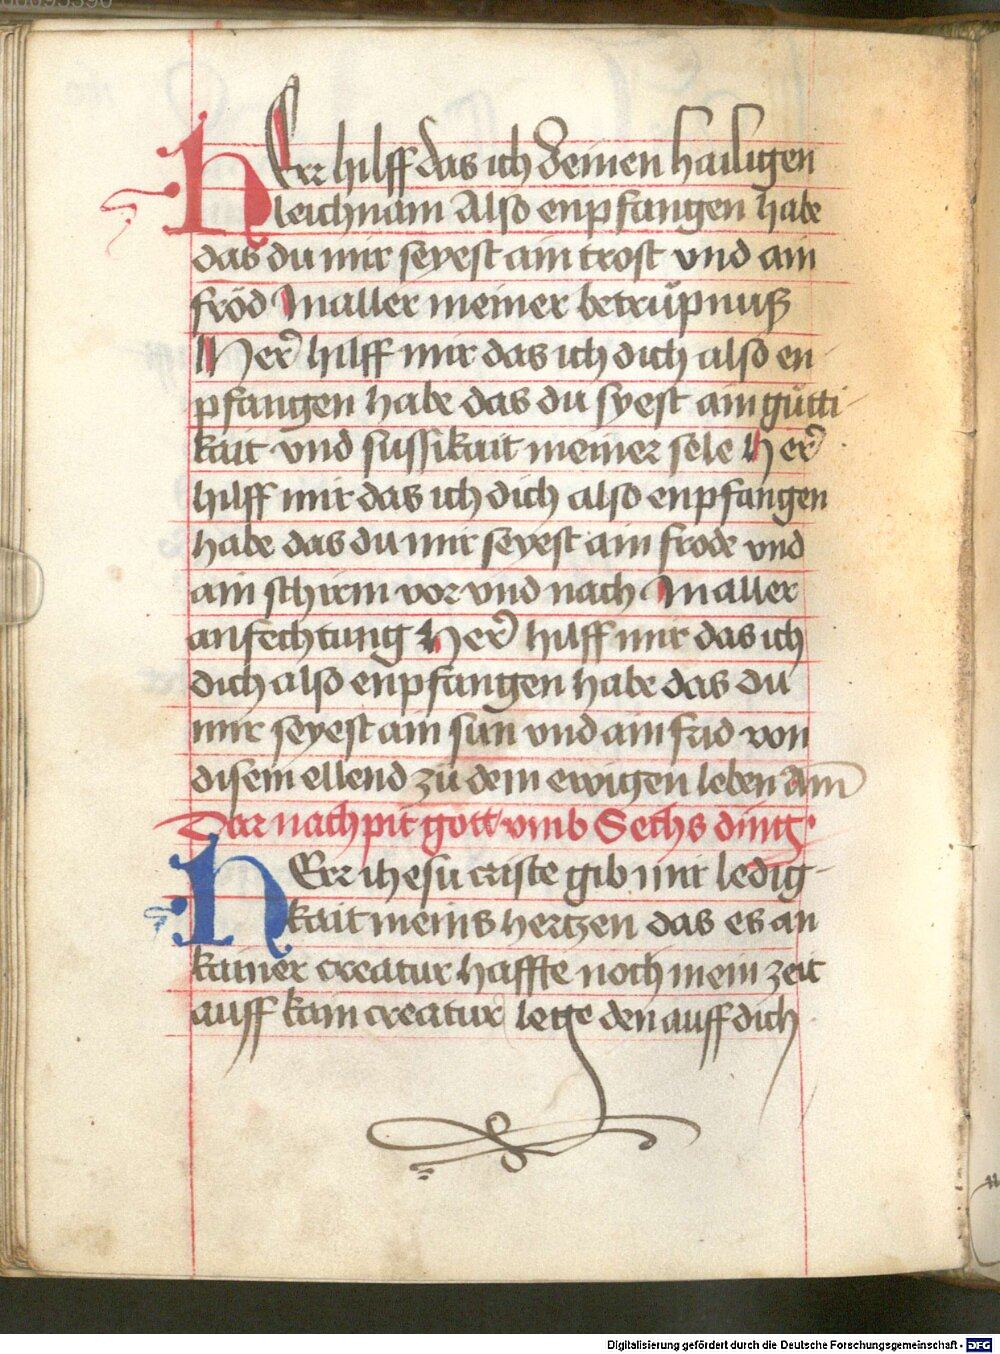 HErr hilff das ich deinen hailigen
leichnam Also enpfangen habe
das du mir seyest ain trost vnd ain
fröd In aller meiner betrüpnuß
Her hilff mir das ich dich also en
pfangen habe das du syest ain gütti
kait vnd sussikait meiner sele Her
hilff mir das ich dich also enpfangen
habe das du mir seyest ain frode vnd
ain schirm vor vnd nach In aller
anfechtung Her hilff mir das ich
dich also enpfangen habe das du
mir seyest ain sun vnd ain frid von
disem ellend zu dem ewigen leben Am
Dar nach pit gott vmb Sechs ding
HErr ihesu criste gib mir ledig
kait meins hertzen das es an
kainer creatur haffte noch mein zeit
auff kain creatur lege den auff dich
Digitalisierung gefördert durch die Deutsche Forschungsgemeinschaft - DFG